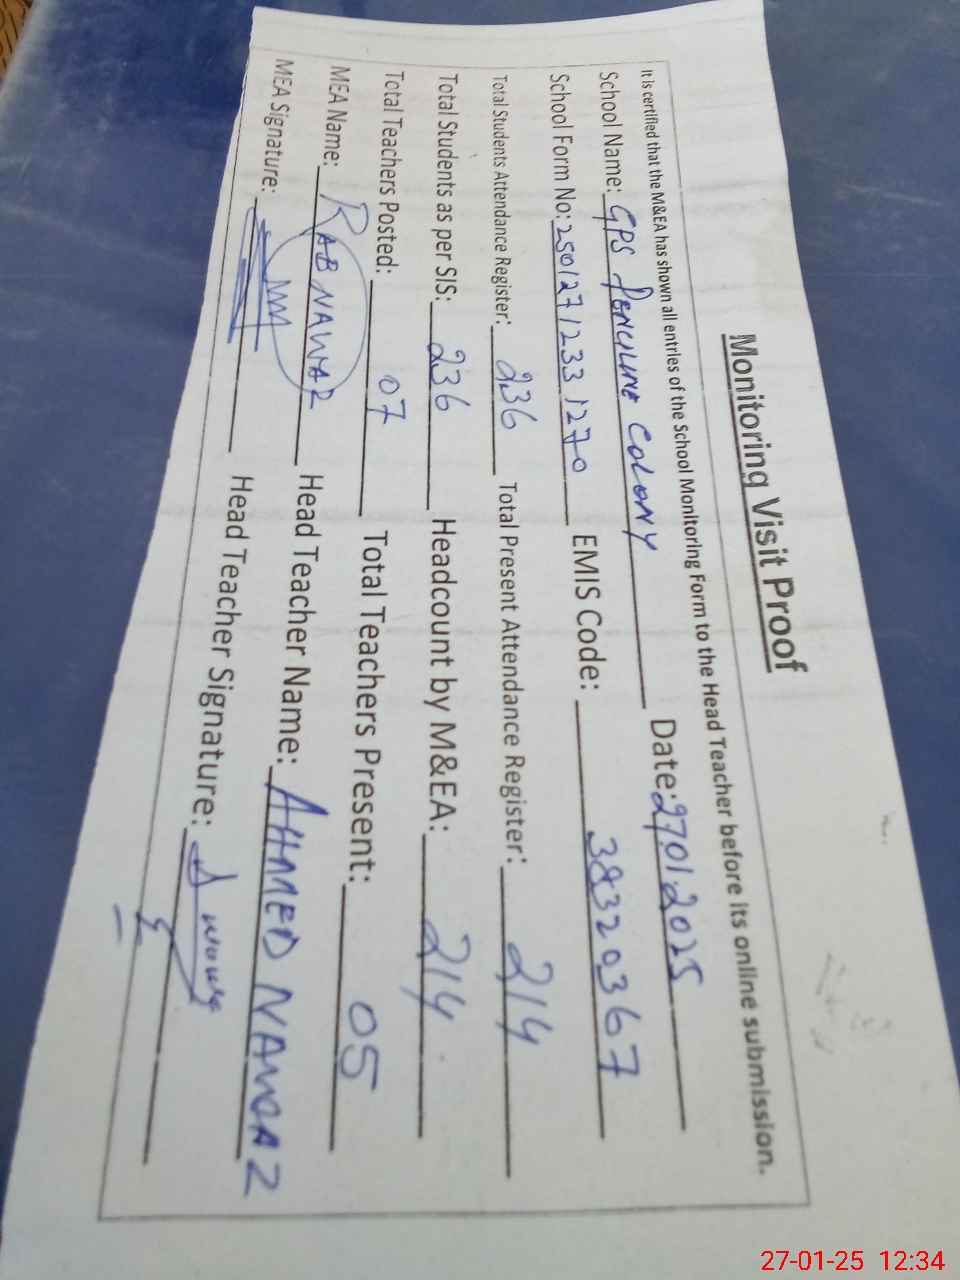 Monitoring Visit Proof
It is certified that the M&EA has shown all entries of the School Monitoring Form to the Head Teacher before its online submission.
School Name: GPS PENCILINE COLONY Date: 27012025
School Form No: 25012712331270 EMIS Code: 38320367
Total Students Attendance Register: 236 Total Present Attendance Register: 214
Total Students as per SIS: 236 Headcount by M&EA: 214
Total Teachers Posted: 07 Total Teachers Present: 05
MEA Name: RAB NAWAZ Head Teacher Name: AHMED NAWAZ
MEA Signature: Head Teacher Signature:
27-01-25 12:34